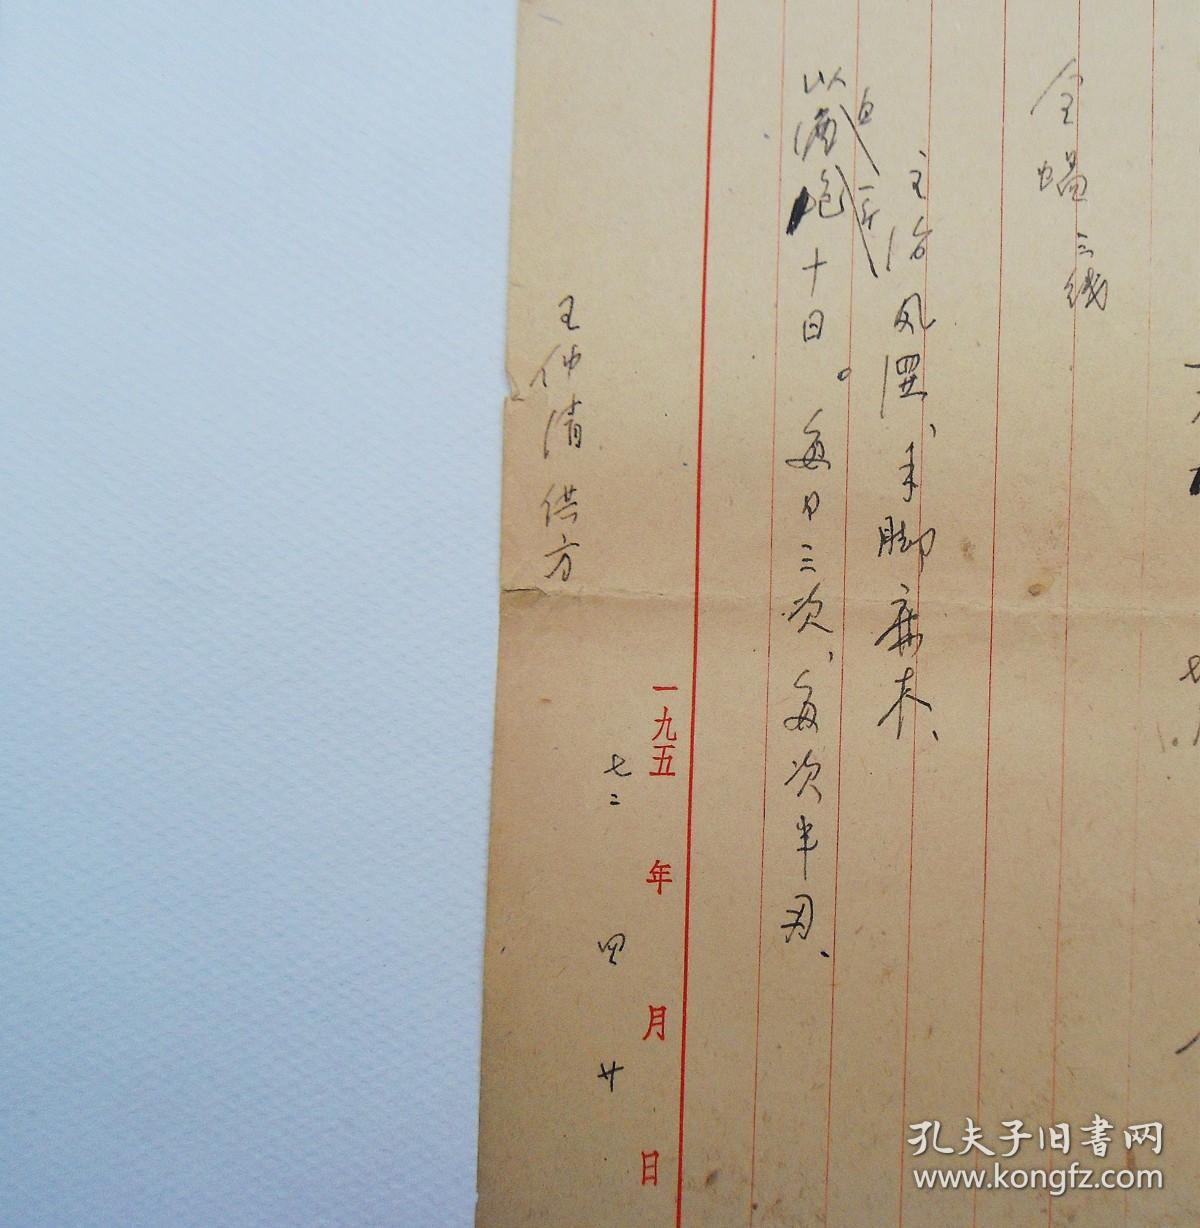 全蝎 三钱
主治风湿、手脚麻木、
以酒泡十日。每日三次、每次半两、
白
一斤
一九五 年 月 日
七二 四 廿
王仲清供方
孔夫子旧书网
www.kongfz.com